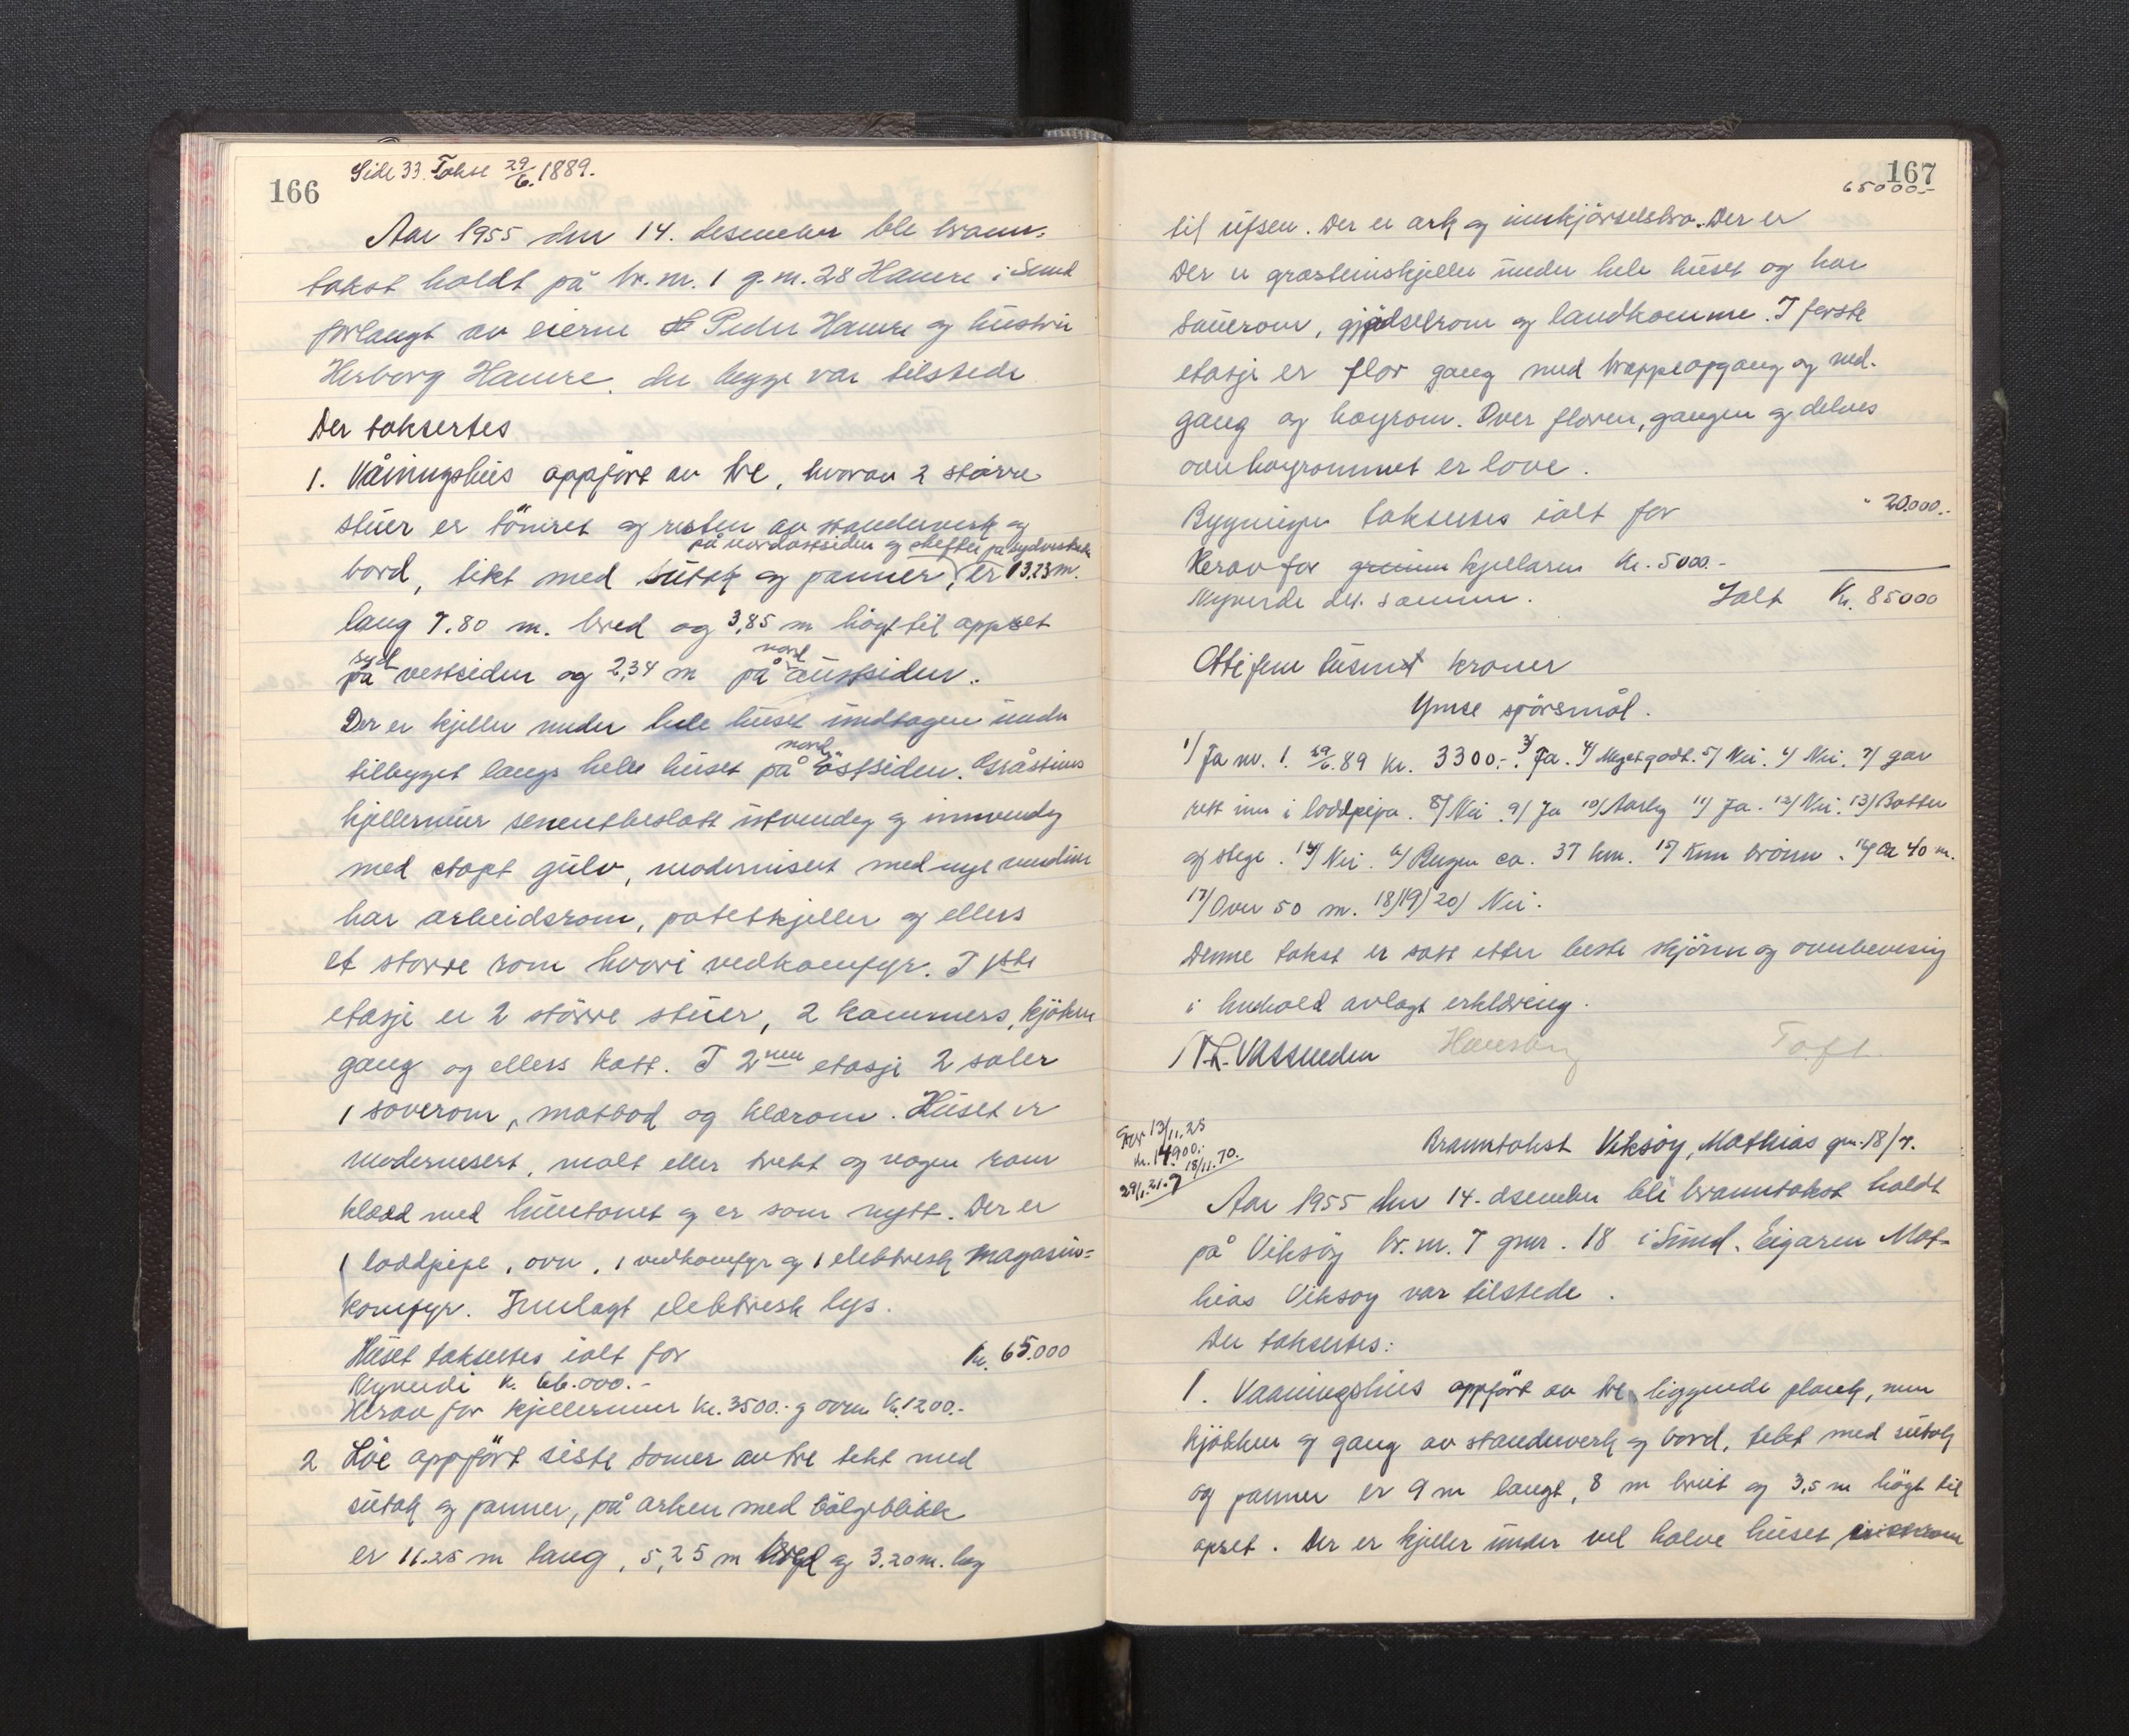 166
Side 33. Takse 29/6. 1889.
Aar 1955 den 14. desember ble brann-
takst holdt på br. nr. 1 g. nr. 28 Hamre i Sund
forlangt av eierne Peder Hamre og hustru
Herborg Hamre, der begge var tilstede
Der taksertes
1. Våningshus oppført av tre, hvorav 2 större
stuer er tömret og resten av standerverk og
på nordostsiden og skifter på sydvestsiden
bord, tekt med sutak og panner, er 13,23 m.
lang 7.80 m. bred og 3,85 m högt til oppset
på syd vestsiden og 2,34 m på nord austsiden.
Der er kjeller under hele huset undtagen under
tilbygget langs hele huset på nord östsiden. Gråsteins
kjellermur sementbeslått utvendig og innvendig
med støpt gulv, modernisert med nye vinduer
har arbeidsrom, potetkjeller og ellers
et storre rom hvori vedkomfyr. I 1ste
etasje er 2 större stuer, 2 kammers, kjöken
gang og ellers kott. I 2nen etasje 2 saler
1 soverom, matbod og klærom. Huset er
modernisert, malt eller trekt og nogen rom
kledd med huntonit og er som nytt. Der er
1 loddpipe, ovn, 1 vedkomfyr og 1 elektrisk magasin-
komfyr. Innlagt elektrisk lys.
Huset takseres ialt for Kr. 65.000
Nyverdi kr. 66.000.-
Herav for kjellermur Kr. 3500.- og ovn Kr. 1200.-
2 Löe oppfört siste somer av tre tekt med
sutak og panner, på arken med bölgeblikk
er 11.25 m lang, 5,25 m bred og 3.20 m. høg
167
65000.-
til ufsen. Der er ark og innkjörselsbro. Der er
Der er grasteinskjeller under hele huset og har
sauerom, gjødselrom og landkomme. I forste
etasje er flor gang med trappeopgang og ned-
gang og høyrom. Over floren, gangen og delves
over høyrommet er løve.
Bygningen takseres ialt for " 20.000.-
Herav for kjellaren Kr. 5000.-
Nyverde det samme. Ialt Kr. 85000
Ottifem tusent kroner
Ymse spörsmål.
1/ Ja nr. 1. 29/6.89 Kr. 3300.-. 3/ Ja. 4/ Meget godt. 5/ Nei. 6/ Nei. 7/ gar
rett inn i loddpipa. 8/ Nei. 9/ Ja 10/ Aarlig 11/ Ja. 12/ Nei. 13/ Bøtter
og stege. 14/ Nei. Bergen ca. 37 km. 15/ Kun brönn. 16/ ca 40 m.
17/ Over 50 m. 18/19/20/ Nei.
Denne takst er satt etter beste skjönn og overbevisnig
i henhold avlagt erklæring.
N.L. Vassenden Toft
For 13/11.25
Kr. 14900.-
18/11.70.
29/1.21.7
Branntakst Viksöy, Mathias gnr. 18/7.
Aar 1955 den 14. desember ble branntakst holdt
på Viksöy br. nr. 7 gnr. 18 i Sund. Eigaren Mat-
hias Viksoy var tilstede.
Der taksertes:
1. Vaaningshus oppfört av tre liggende plank, men
kjökken og gang av standerverk og bord, tekt med sutak
og panner er 9 m langt, 8 m breit og 3,5 m högt til
opset. Der er kjeller under vel halve huset